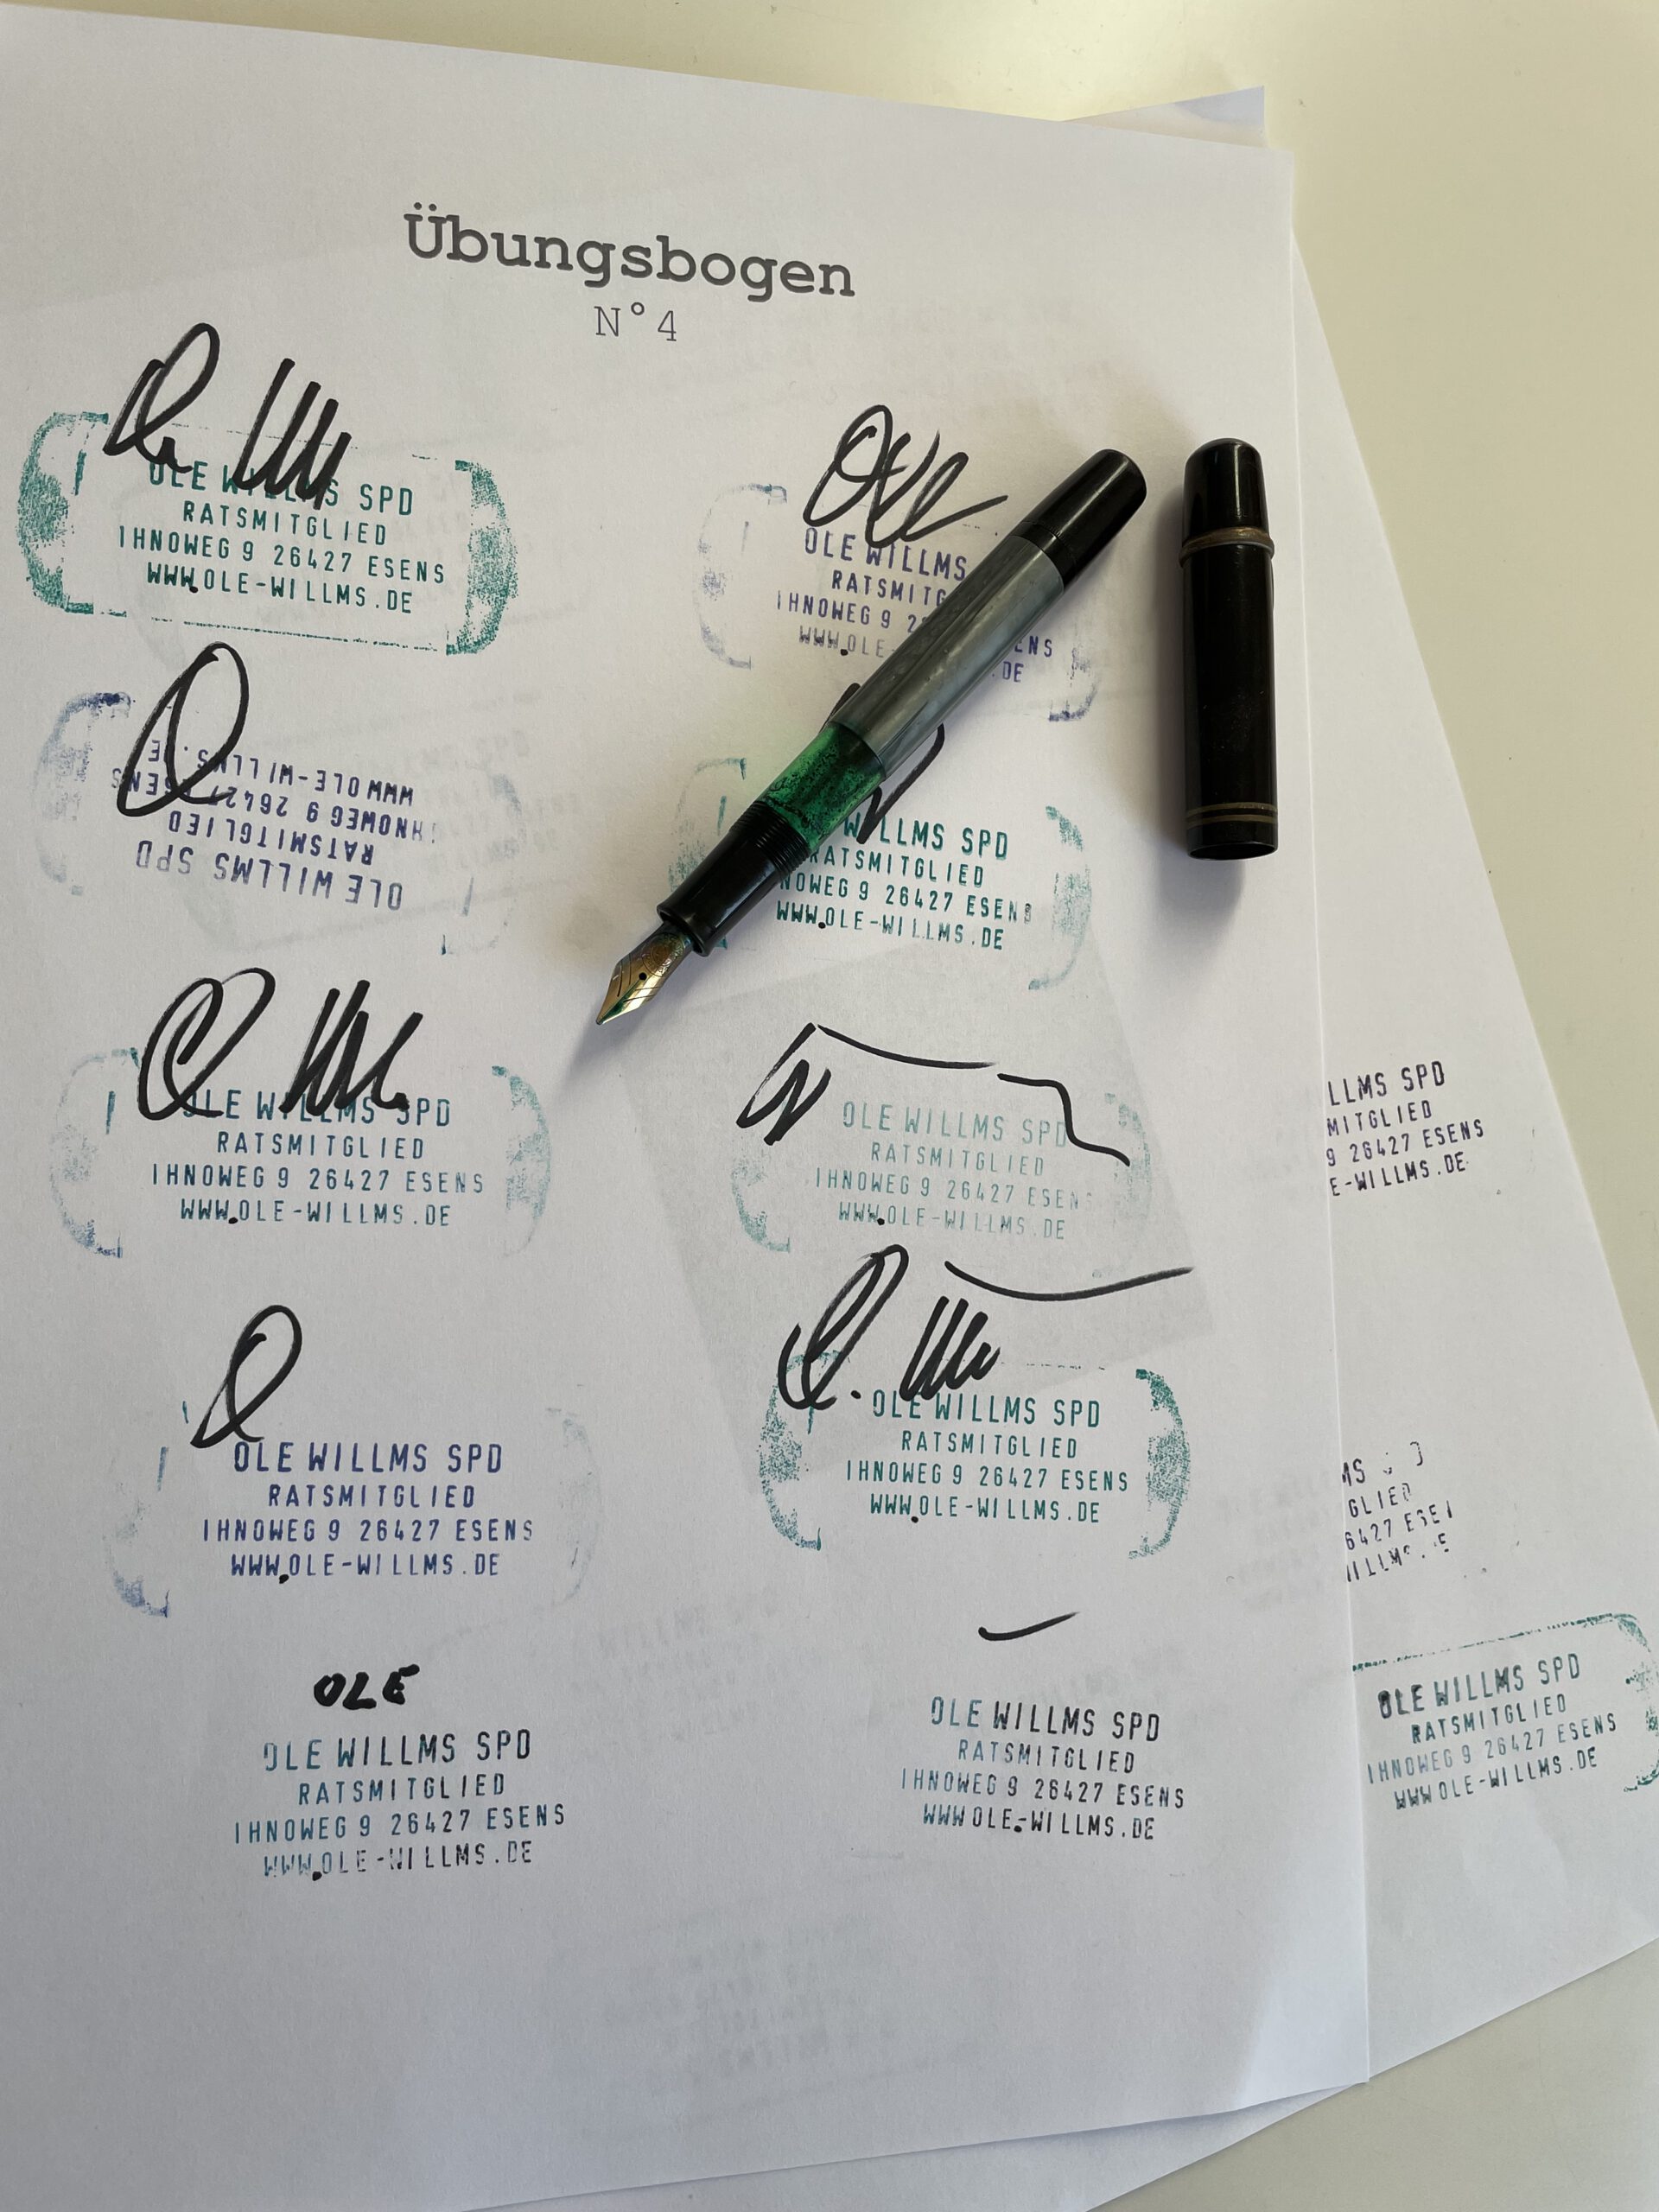 Übungsbogen
N°4
OLE WILLMS SPD
RATSMITGLIED
IHNOWEG 9 26427 ESENS
WWW.OLE-WILLMS.DE
Ole
OLE WILLMS
IHNOWEG 9
WWW.OLE-
.DE
OLE WILLMS SPD
RATSMITGLIED
IHNOWEG 9 26427 ESENS
WWW OLE-WILLMS.DE
WILLMS SPD
RATSMITGLIED
NOWEG 9 26427 ESENS
WWW.OLE-WILLMS.DE
OLE WILLMS SPD
RATSMITGLIED
IHNOWEG 9 26427 ESENS
WWW.OLE-WILLMS.DE
OLE WILLMS SPD
RATSMITGLIED
IHNOWEG 9 26427 ESENS
WWW.OLE-WILLMS.DE
OLE WILLMS SPD
RATSMITGLIED
IHNOWEG 9 26427 ESENS
WWW.OLE-WILLMS.DE
OLE WILLMS SPD
RATSMITGLIED
IHNOWEG 9 26427 ESENS
WWW.OLE-WILLMS.DE
OLE
OLE WILLMS SPD
RATSMITGLIED
IHNOWEG 9 26427 ESENS
WWW.OLE-WILLMS.DE
OLE WILLMS SPD
RATSMITGLIED
IHNOWEG 9 26427 ESENS
WWW OLE-WILLMS.DE
LLMS SPD
MITGLIED
9 26427 ESENS
E-WILLMS.DE
MS
GLIED
6427
OLE WILLMS SPD
RATSMITGLIED
IHNOWEG 9 26427 ESENS
WWW OLE-WILLMS.DE